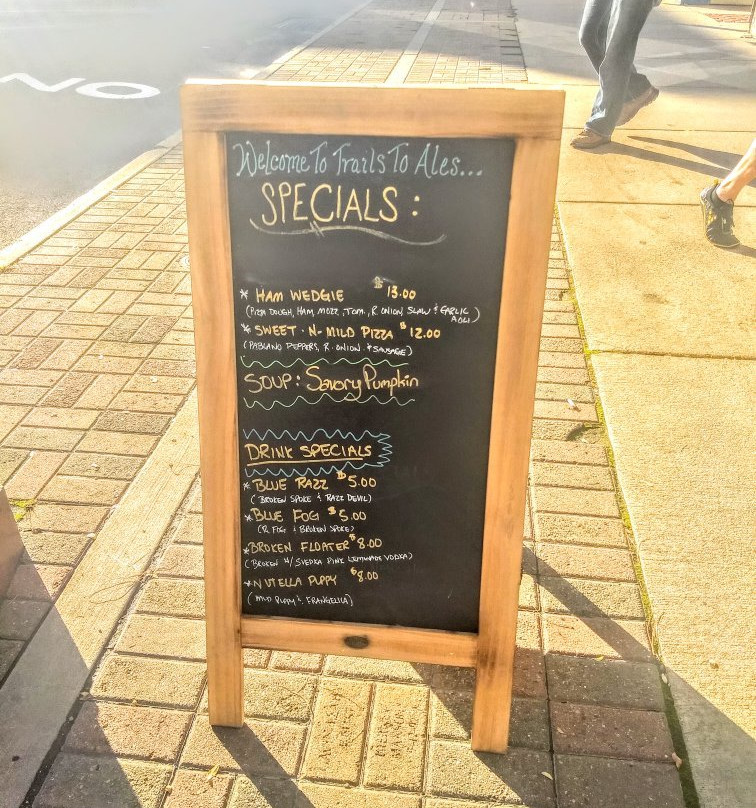 NO
Welcome To Trails To Ales...
SPECIALS:
* HAM WEDGIE $13.00
(PIZZA DOUGH, HAM, MOZZ, TOM, R. ONION, SLAW & GARLIC AOLI)
* SWEET-N-MILD PIZZA $12.00
(PABLANO PEPPERS, R. ONION & SAUSAGE)
SOUP: Savory Pumpkin
DRINK SPECIALS
* BLUE RAZZ $5.00
(BROKEN SPOKE & RAZZ DEVIL)
* BLUE FOG $5.00
(R. FOG & BROKEN SPOKE)
* BROKEN FLOATER $8.00
(BROKEN W/ SVEDKA PINK LEMONADE VODKA)
* NUTELLA PUPPY $8.00
(MUD PUPPY & FRANGELICA)